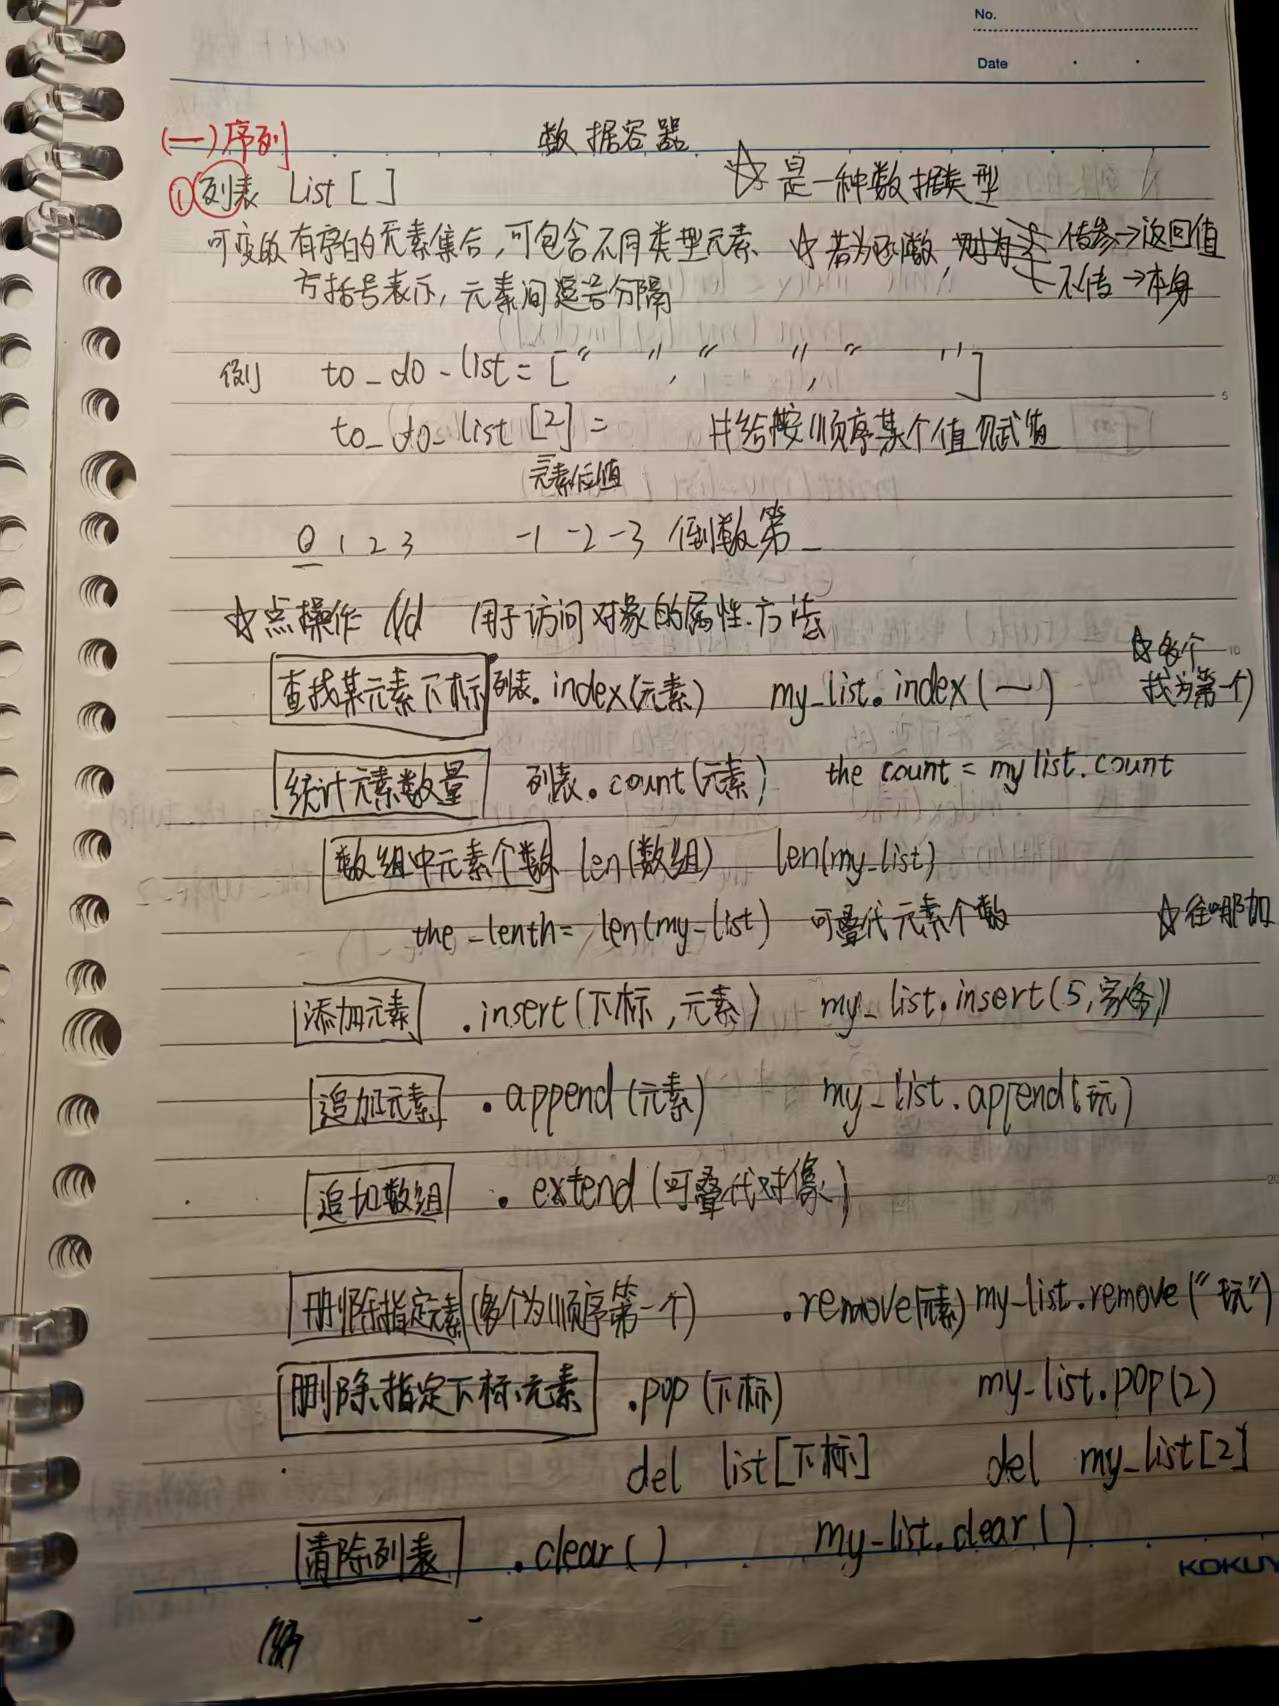 No.
Date
(一)序列
数据容器
①列表 List [ ]
☆是一种数据类型
可变的有序的元素集合,可包含不同类型元素
☆若为函数,则为
传参→返回值
不传→本身
方括号表示,元素间逗号分隔
例 to_do_list = [“ ”, “ ”, “ ”]
to_do_list [2] = 并给按顺序某个值赋值
元素位值
0 1 2 3 -1 -2 -3 倒数第_
☆点操作 用于访问对象的属性.方法
☆多个
找为第一个
查找某元素下标 列表.index(元素) my_list.index(一)
统计元素数量 列表.count(元素) the count = mylist.count
数组中元素个数 len(数组) len(my_list)
the_lenth = len(my_list) 可叠代元素个数
☆往哪加
添加元素 .insert(下标,元素) my_list.insert(5,
追加元素 .append(元素) my_list.append(玩)
追加数组 .extend(可叠代对像)
删除指定元素 (多个为顺序第一个) .remove(元素) my_list.remove(“玩”)
删除指定下标元素 .pop(下标) my_list.pop(2)
del list[下标] del my_list[2]
清除列表 .clear() my_list.clear()
KOKUY